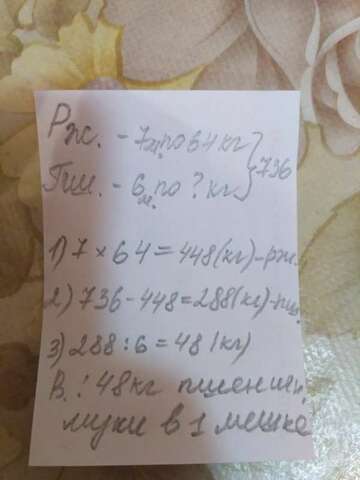 Рж. - 7м. по 64 кг } 736
Пш. - 6 м. по ? кг
1) 7 × 64 = 448 (кг) - рж.
2) 736 - 448 = 288 (кг) - пш.
3) 288 : 6 = 48 (кг)
В.: 48 кг пшенич.
муки в 1 мешке